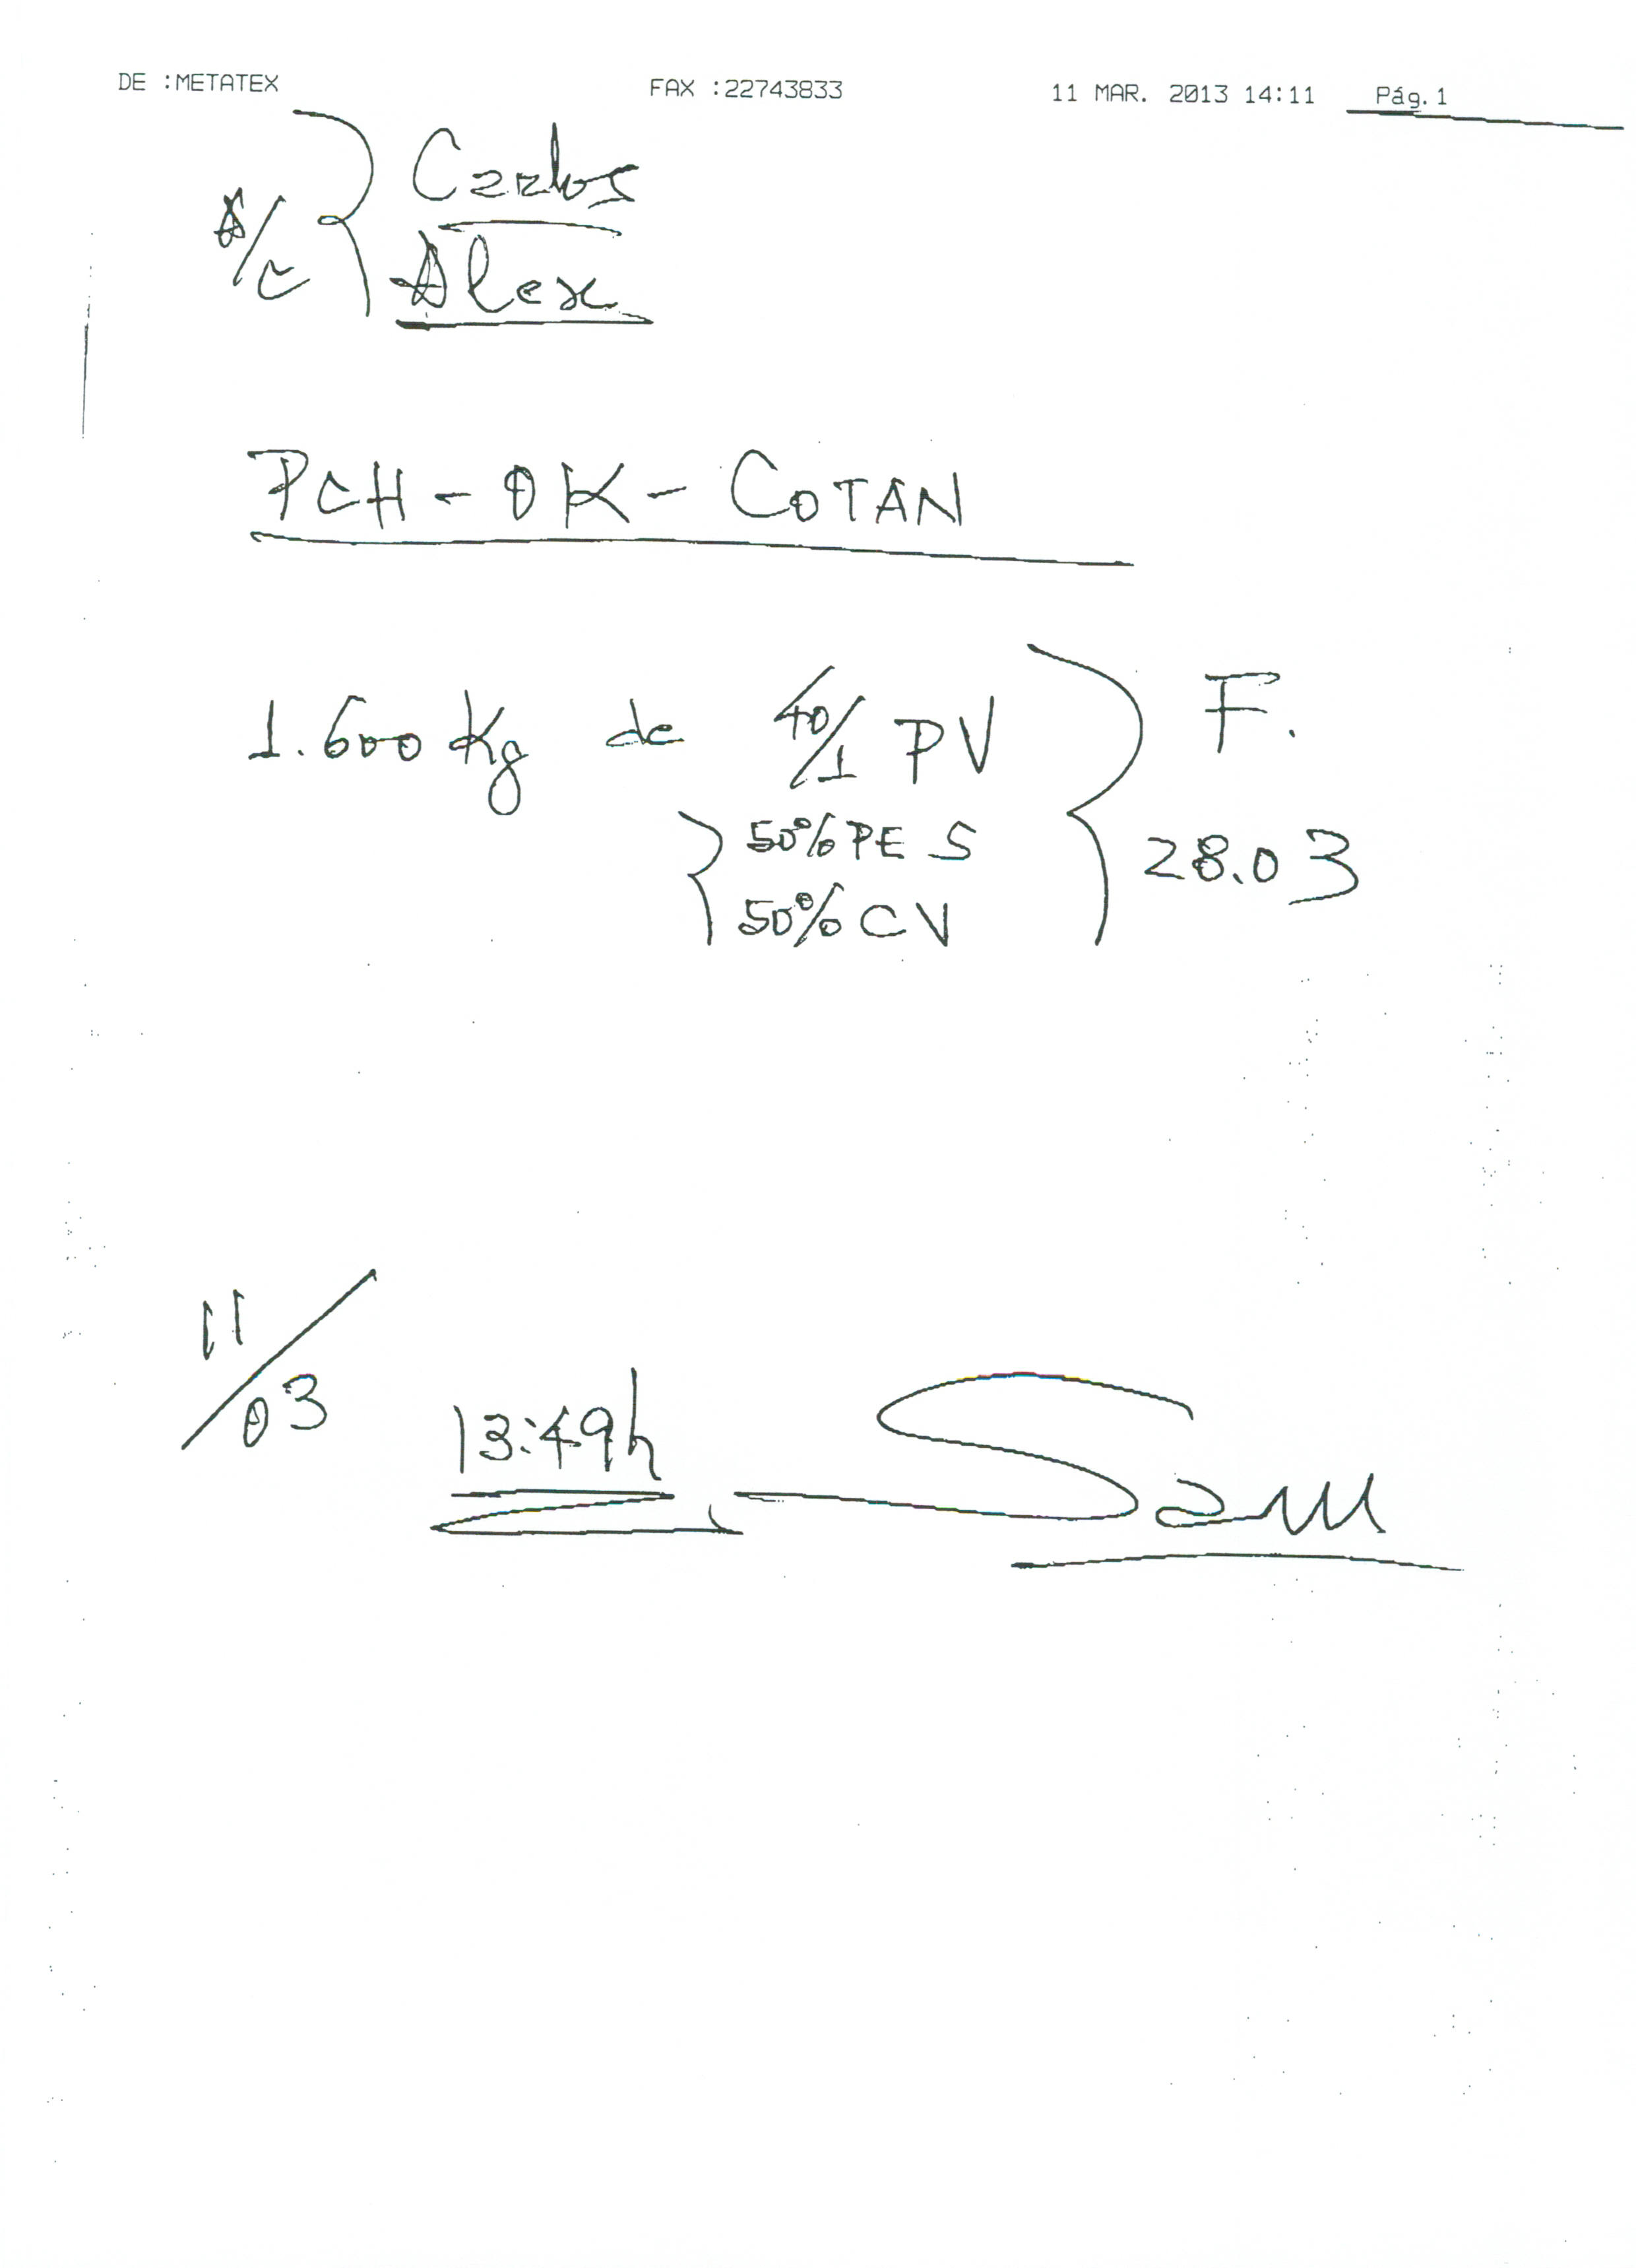 DE :METATEX FAX :22743833 11 MAR. 2013 14:11 Pág.1
A/C Carlos
Alex
PCH-OK-COTAN
1.600 Kg de 40/1 PV F.
50% PE S 28.03
50% CV
11/03 13:49h Sam